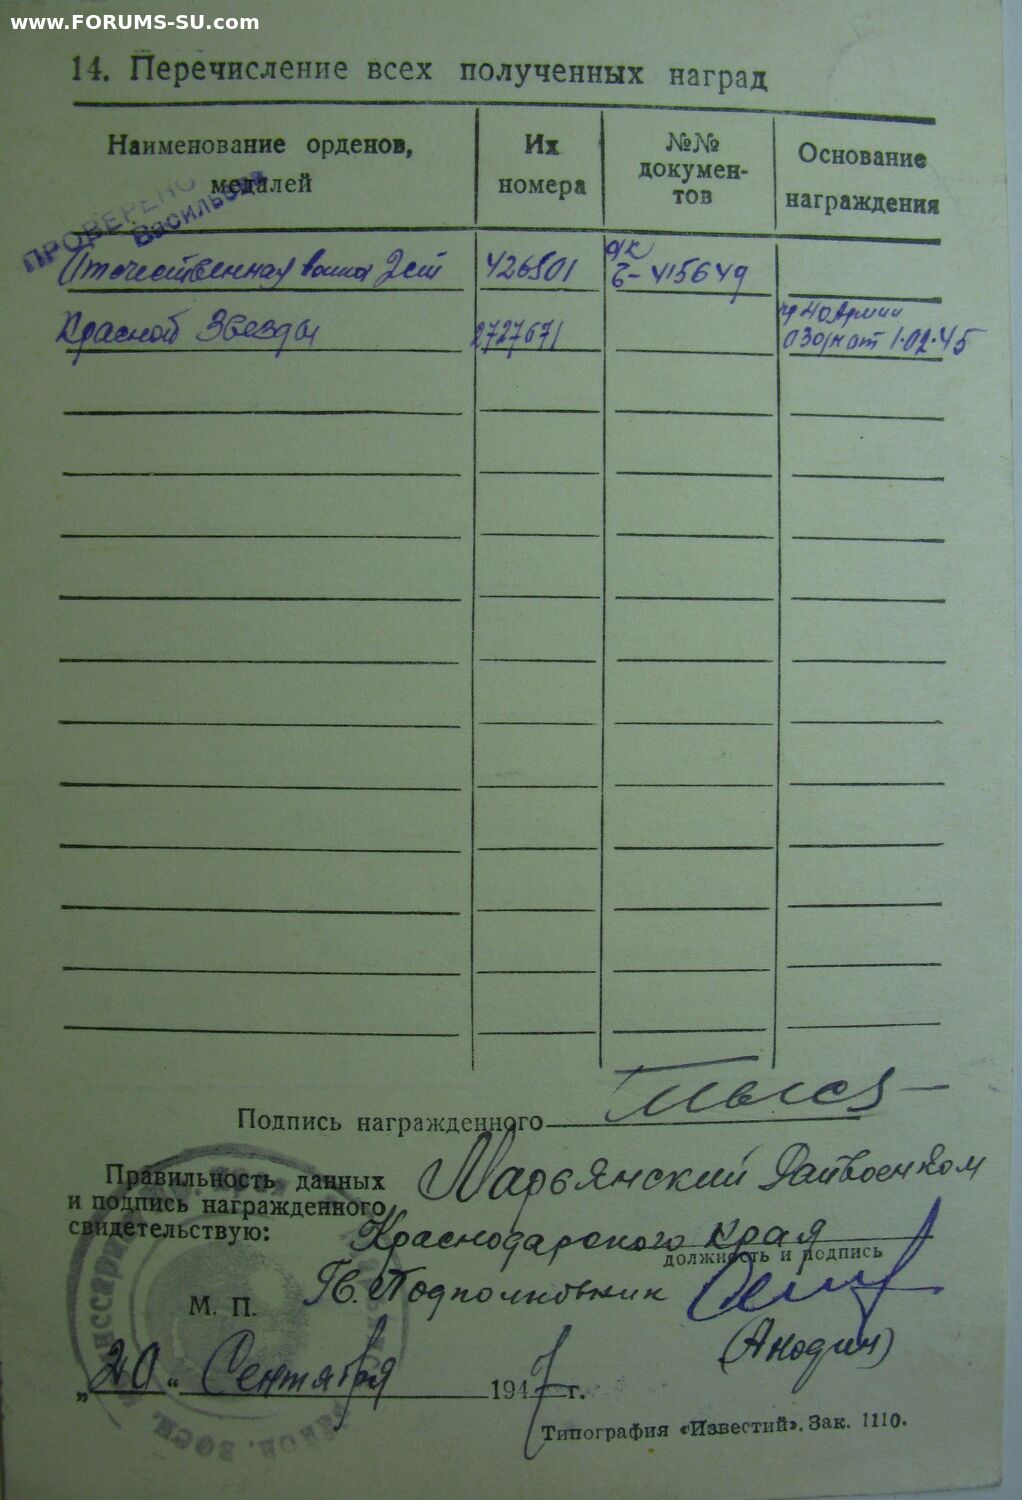 www.FORUMS-SU.com
14. Перечисление всех полученных наград
Наименование орденов, медалей
Их номера
№№ документов
Основание награждения
ПРОВЕРЕНО
Васильева
Отечественная война 2 ст 426801 Б-415649
Красной Звезды 2727671
пр 40 Армии
от 1.02.45
Подпись награжденного
Правильность данных
и подпись награжденного
свидетельствую:
Марьянский Райвоенком
Краснодарского края
должность и подпись
Гв. Подполковник
М. П.
(Анодин)
„20“ Сентября 1947 г.
Типография «Известий». Зак. 1110.